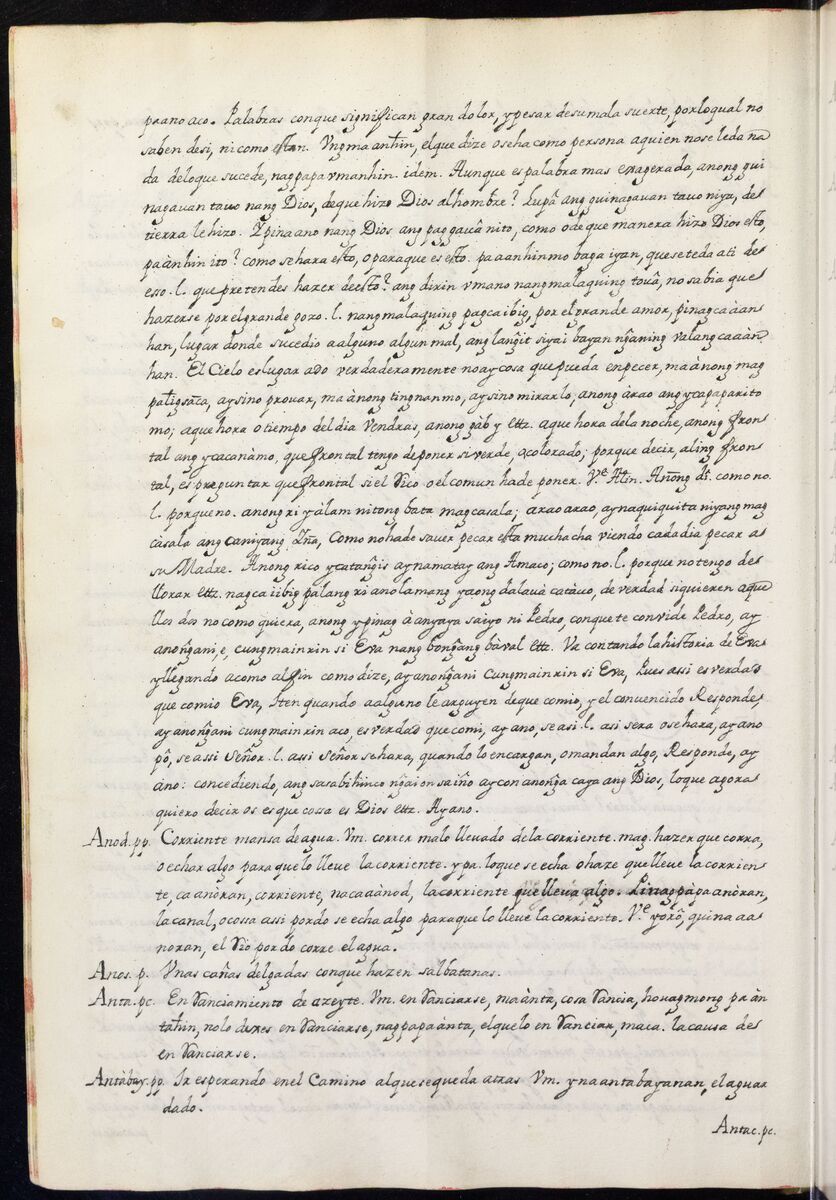 paano aco. Palabras conque significan gran dolor, y pesar desumala suerte, porloqual no
saben desi, ni como estan. Vngma anhin, elque dize oseha como persona aquien nose leda na
da deloque sucede, nagpapa vmanhin. idem. Aunque es palabra mas exagerada, anong gui
nagauan tauo nang Dios, deque hizo Dios alhombre? Lupâ ang guinagauan tauo niya, de
tierra le hizo. Ypina ano nang Dios ang paggauâ nito, como ôde que manera hizo Dios esto,
paànhin ito? como sehara esto, o paraque es esto. pa aanhinmo baga iyan, que se teda ati de
esso. l. que pretendes hazer de esto? ang dirin vmano nang malaquing touâ, no sabia que
hazerse por el grande gozo. l. nang malaquing pagcaibig, por el grande amor, pinagcaàan
han, lugar donde sucedio a alguno algun mal, ang lan͠git siyai bayan n͠ganing valang caaàn
han. El Cielo es lugar ado verdaderamente no ay cosa que pueda enpecer, maànong mag
patigsaca, ay sino prouar, ma ànong tingnanmo, ay sino mirarlo; anong àrao ang ycapaparito
mo; a que hora o tiempo del dia Vendras, anong gàb y ettz. aque hora dela noche, anong fron
tal ang ycacanàmo, que frontal tengo de poner si verde, o colorado; porque decir, aling fron
tal, es preguntar que frontal si el Rico o el comun ha de poner. V.e Alin. An͠ong di. como no.
l. porque no. anong ri y alam nitong bata magcasala; arao arao, ay naquiquita niyang mag
càsala ang caniyang Yna, Como nohade sauer pecar esta muchacha viendo cada dia pecar a
su Madre. Anong rico ycatan͠gis ay namatay ang Amaco; como no. l. porque no tengo de
llorar ettz. nagcaiibig palang ri ano lamang yaong dalauà catàuo, de verdad si quieren aque
llos dos no como quiera, anong ypinag à anyaya saiyo ni Pedro, conque te convide Pedro, ay
anon͠gani, e, cungmain rin si Eva nang bon͠gang bàval ettz. Va contando la historia de Eva
y llegando a como al fin como dize, ay anon͠gani cungmain rin si Eva, Pues assi es verdad
que comio Eva, Iten quando a alguno le arguyen deque comio, y el convencido Responde,
ay anon͠gani cungmain rin aco, es verdad que comi, ay ano, se asi. l. asi sera ose hara, ay ano
pô, se assi Señor. l. assi Señor se hara, quando lo encargan, o mandan algo, Responde, ay
ano: concediendo, ang sasabihinco n͠gaion sa iño ay con anon͠ga caya ang Dios, lo que agora
quiero decir os es que cossa es Dios ettz. Ay ano.
Anod. pp. Corriente mansa de agua. Vm. correr malo llevado dela corriente. mag. hazer que corra,
o echar algo para que lo lleve la corriente. y pa. lo que se echa o haze que lleve la corrien
te, ca anòran, corriente, nacaaànod, la corriente que lleva algo. Pinagpapa anòran,
la canal, o cossa assi por do se echa algo para que lo lleve la corriente. V.e yorô, quina aa
noran, el Rio por do corre el agua.
Anos. p. Vnas cañas delgadas con que hazen salbatanas.
Anta. pc. En Ranciamiento de azeyte. Vm. en Ranciarse, maànta, cosa Rancia, houagmong pa àn
tahin, no lo dexes en Ranciarse, nagpapaànta, el que lo en Ranciar, maca. la causa de
en Ranciarse.
Antàbay. pp. Ir esperando en el Camino al que se queda atras Vm. yna antabayanan, el aguar
dado.
Antac. pc.